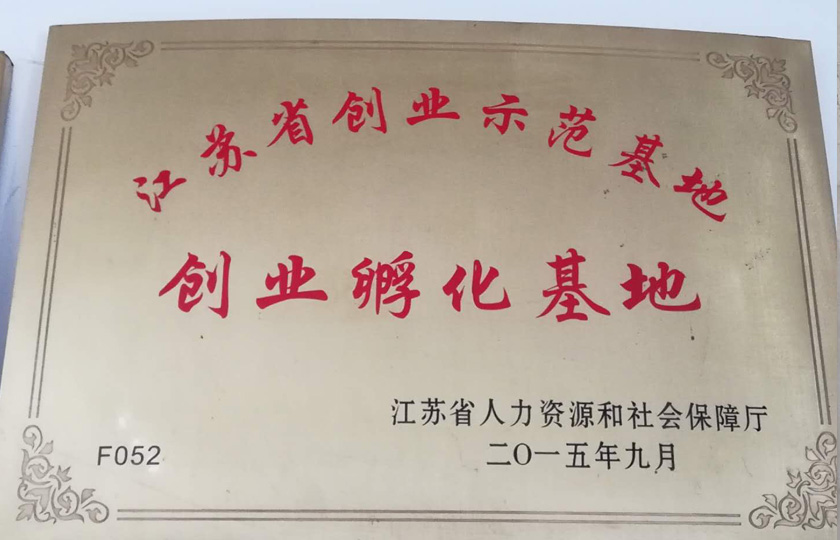 江苏省创业示范基地
创业孵化基地
江苏省人力资源和社会保障厅
F052
二〇一五年九月